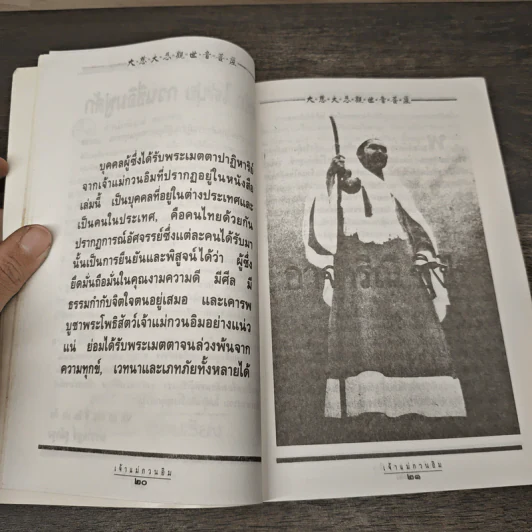 大・慈・大・悲・觀・世・音・菩・薩
บุคคลผู้ซึ่งได้รับพระเมตตาปาฏิหาริย์
จากเจ้าแม่กวนอิมที่ปรากฏอยู่ในหนังสือ
เล่มนี้ เป็นบุคคลที่อยู่ในต่างประเทศและ
เป็นคนในประเทศ, คือคนไทยด้วยกัน
ปรากฏการณ์อัศจรรย์ซึ่งแต่ละคนได้รับมา
นั้นเป็นการยืนยันและพิสูจน์ได้ว่า ผู้ซึ่ง
ยึดมั่นถือมั่นในคุณงามความดี มีศีล มี
ธรรมกำกับจิตใจตนอยู่เสมอ และเคารพ
บูชาพระโพธิสัตว์เจ้าแม่กวนอิมอย่างแน่ว
แน่ ย่อมได้รับพระเมตตาจนล่วงพ้นจาก
ความทุกข์, เวทนาและเภทภัยทั้งหลายได้
เจ้าแม่กวนอิม
๒๐
大・慈・大・悲・觀・世・音・菩・薩
เจ้าแม่กวนอิม
๒๑